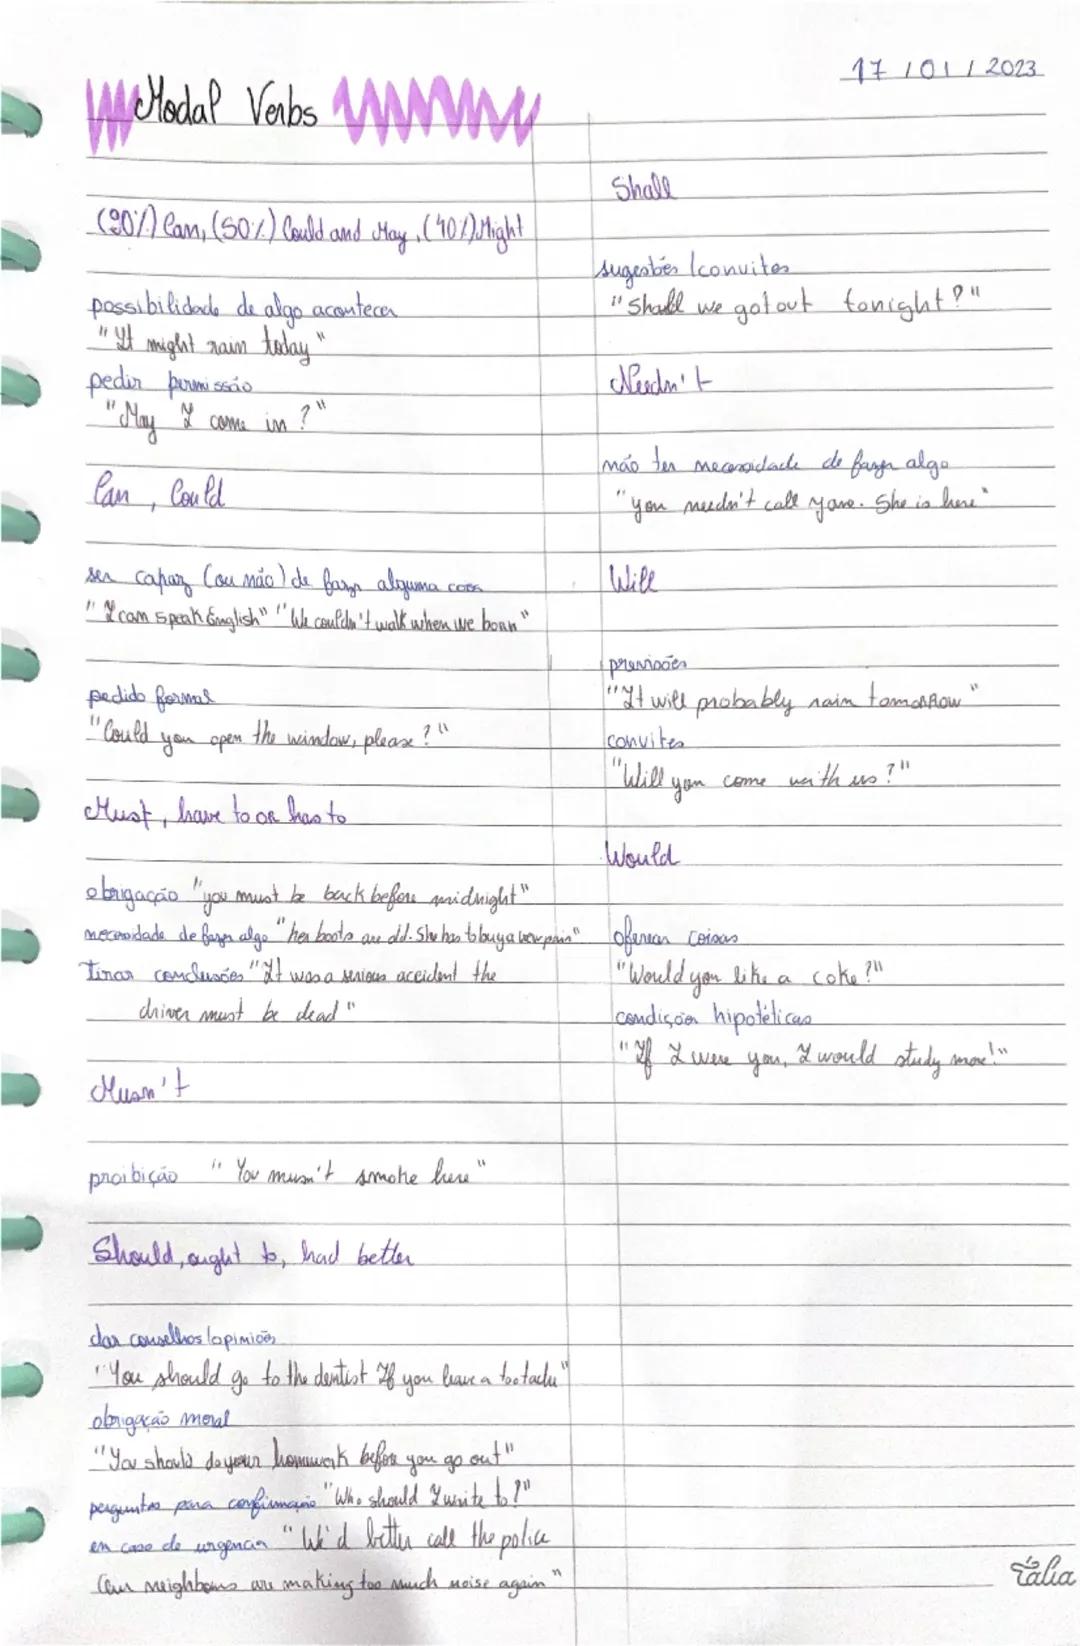 17 / 01 / 2023
Modal Verbs
(90%) Can, (50%) Could and May, (40%) Might
possibilidade de algo acontecer
"It might rain today"
pedir permissão
"May I come in?"
Can, Could
ser capaz (ou não) de fazer alguma coisa
"I can speak English" "We couldn't walk when we born"
pedido formal
"Could you open the window, please?"
Must, have to or has to
obrigação "you must be back before midnight"
necessidade de fazer algo "her boots are old. She has to buy a new pair"
Tirar conclusões "It was a serious accident the
driver must be dead"
Musn't
proibição "You musn't smoke here"
Should, ought to, had better
dar conselhos/opiniões
"You should go to the dentist If you have a tootache"
obrigação moral
"You should do your homework before you go out"
perguntas para confirmação "Who should I write to?"
em caso de urgência "We'd better call the police
Our neighbours are making too much noise again"
Shall
sugestões/convites
"Shall we go out tonight?"
Needn't
não ter necessidade de fazer algo
"you needn't call . She is here"
Will
previsões
"It will probably rain tomorrow"
convites
"Will you come with us?"
Would
oferecer coisas
"Would you like a coke?"
condições hipotéticas
"If I were you, I would study more!"
tália